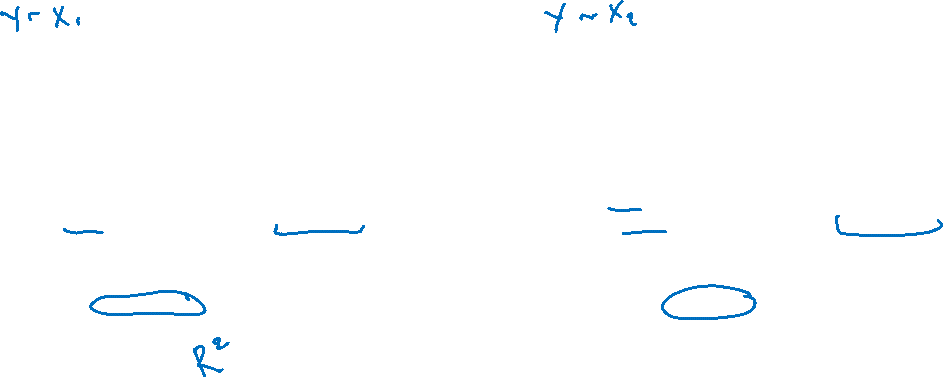 Y ~ X₁
Y ~ X₂
R²